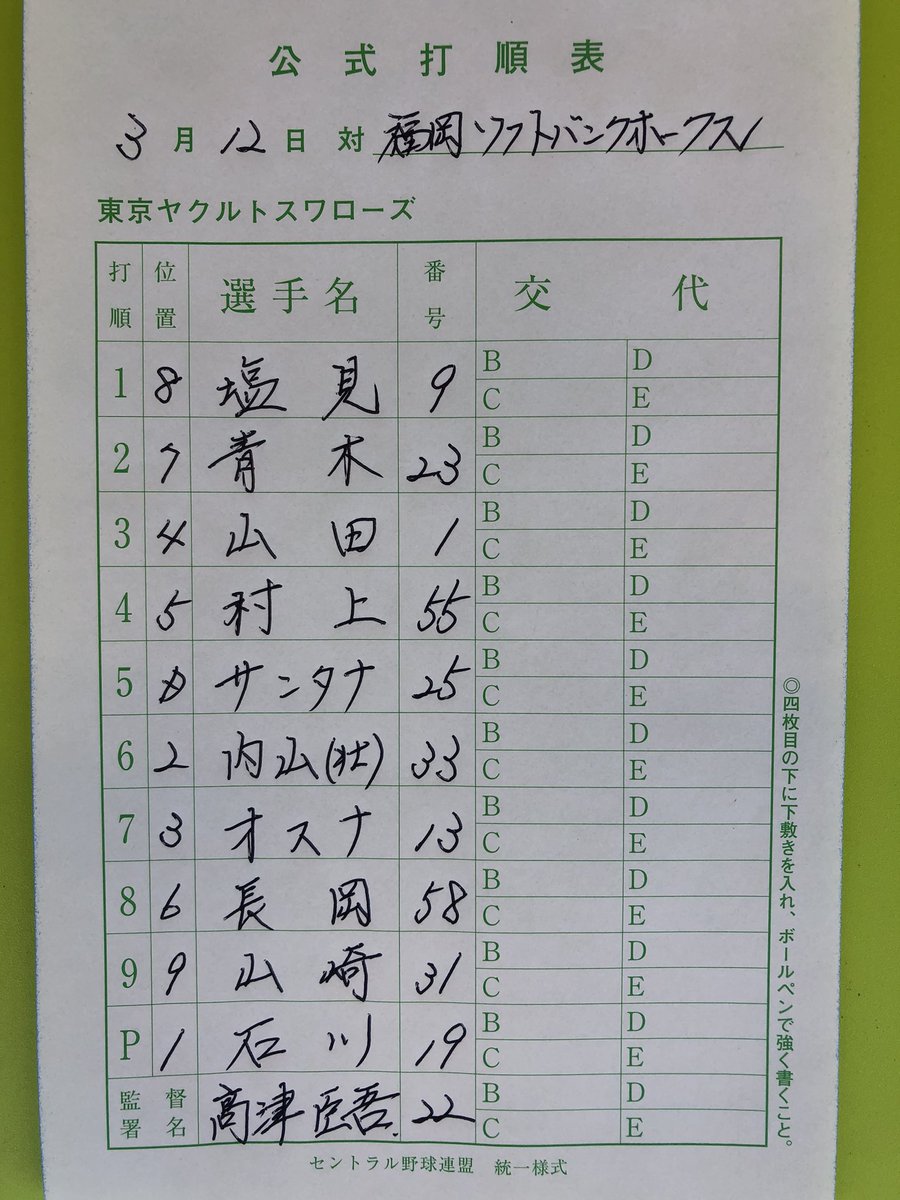 公式打順表
3月12日 対 福岡ソフトバンクホークス
東京ヤクルトスワローズ
打順 位置 選手名 番号 交代
1 8 塩見 9 B D
C E
2 7 青木 23 B D
C E
3 4 山田 1 B D
C E
4 5 村上 55 B D
C E
5 D サンタナ 25 B D
C E
6 2 内山(壮) 33 B D
C E
7 3 オスナ 13 B D
C E
8 6 長岡 58 B D
C E
9 9 山崎 31 B D
C E
P 1 石川 19 B D
C E
監督署名 高津臣吾 22 B D
C E
◎四枚目の下に下敷きを入れ、ボールペンで強く書くこと。
セントラル野球連盟 統一様式